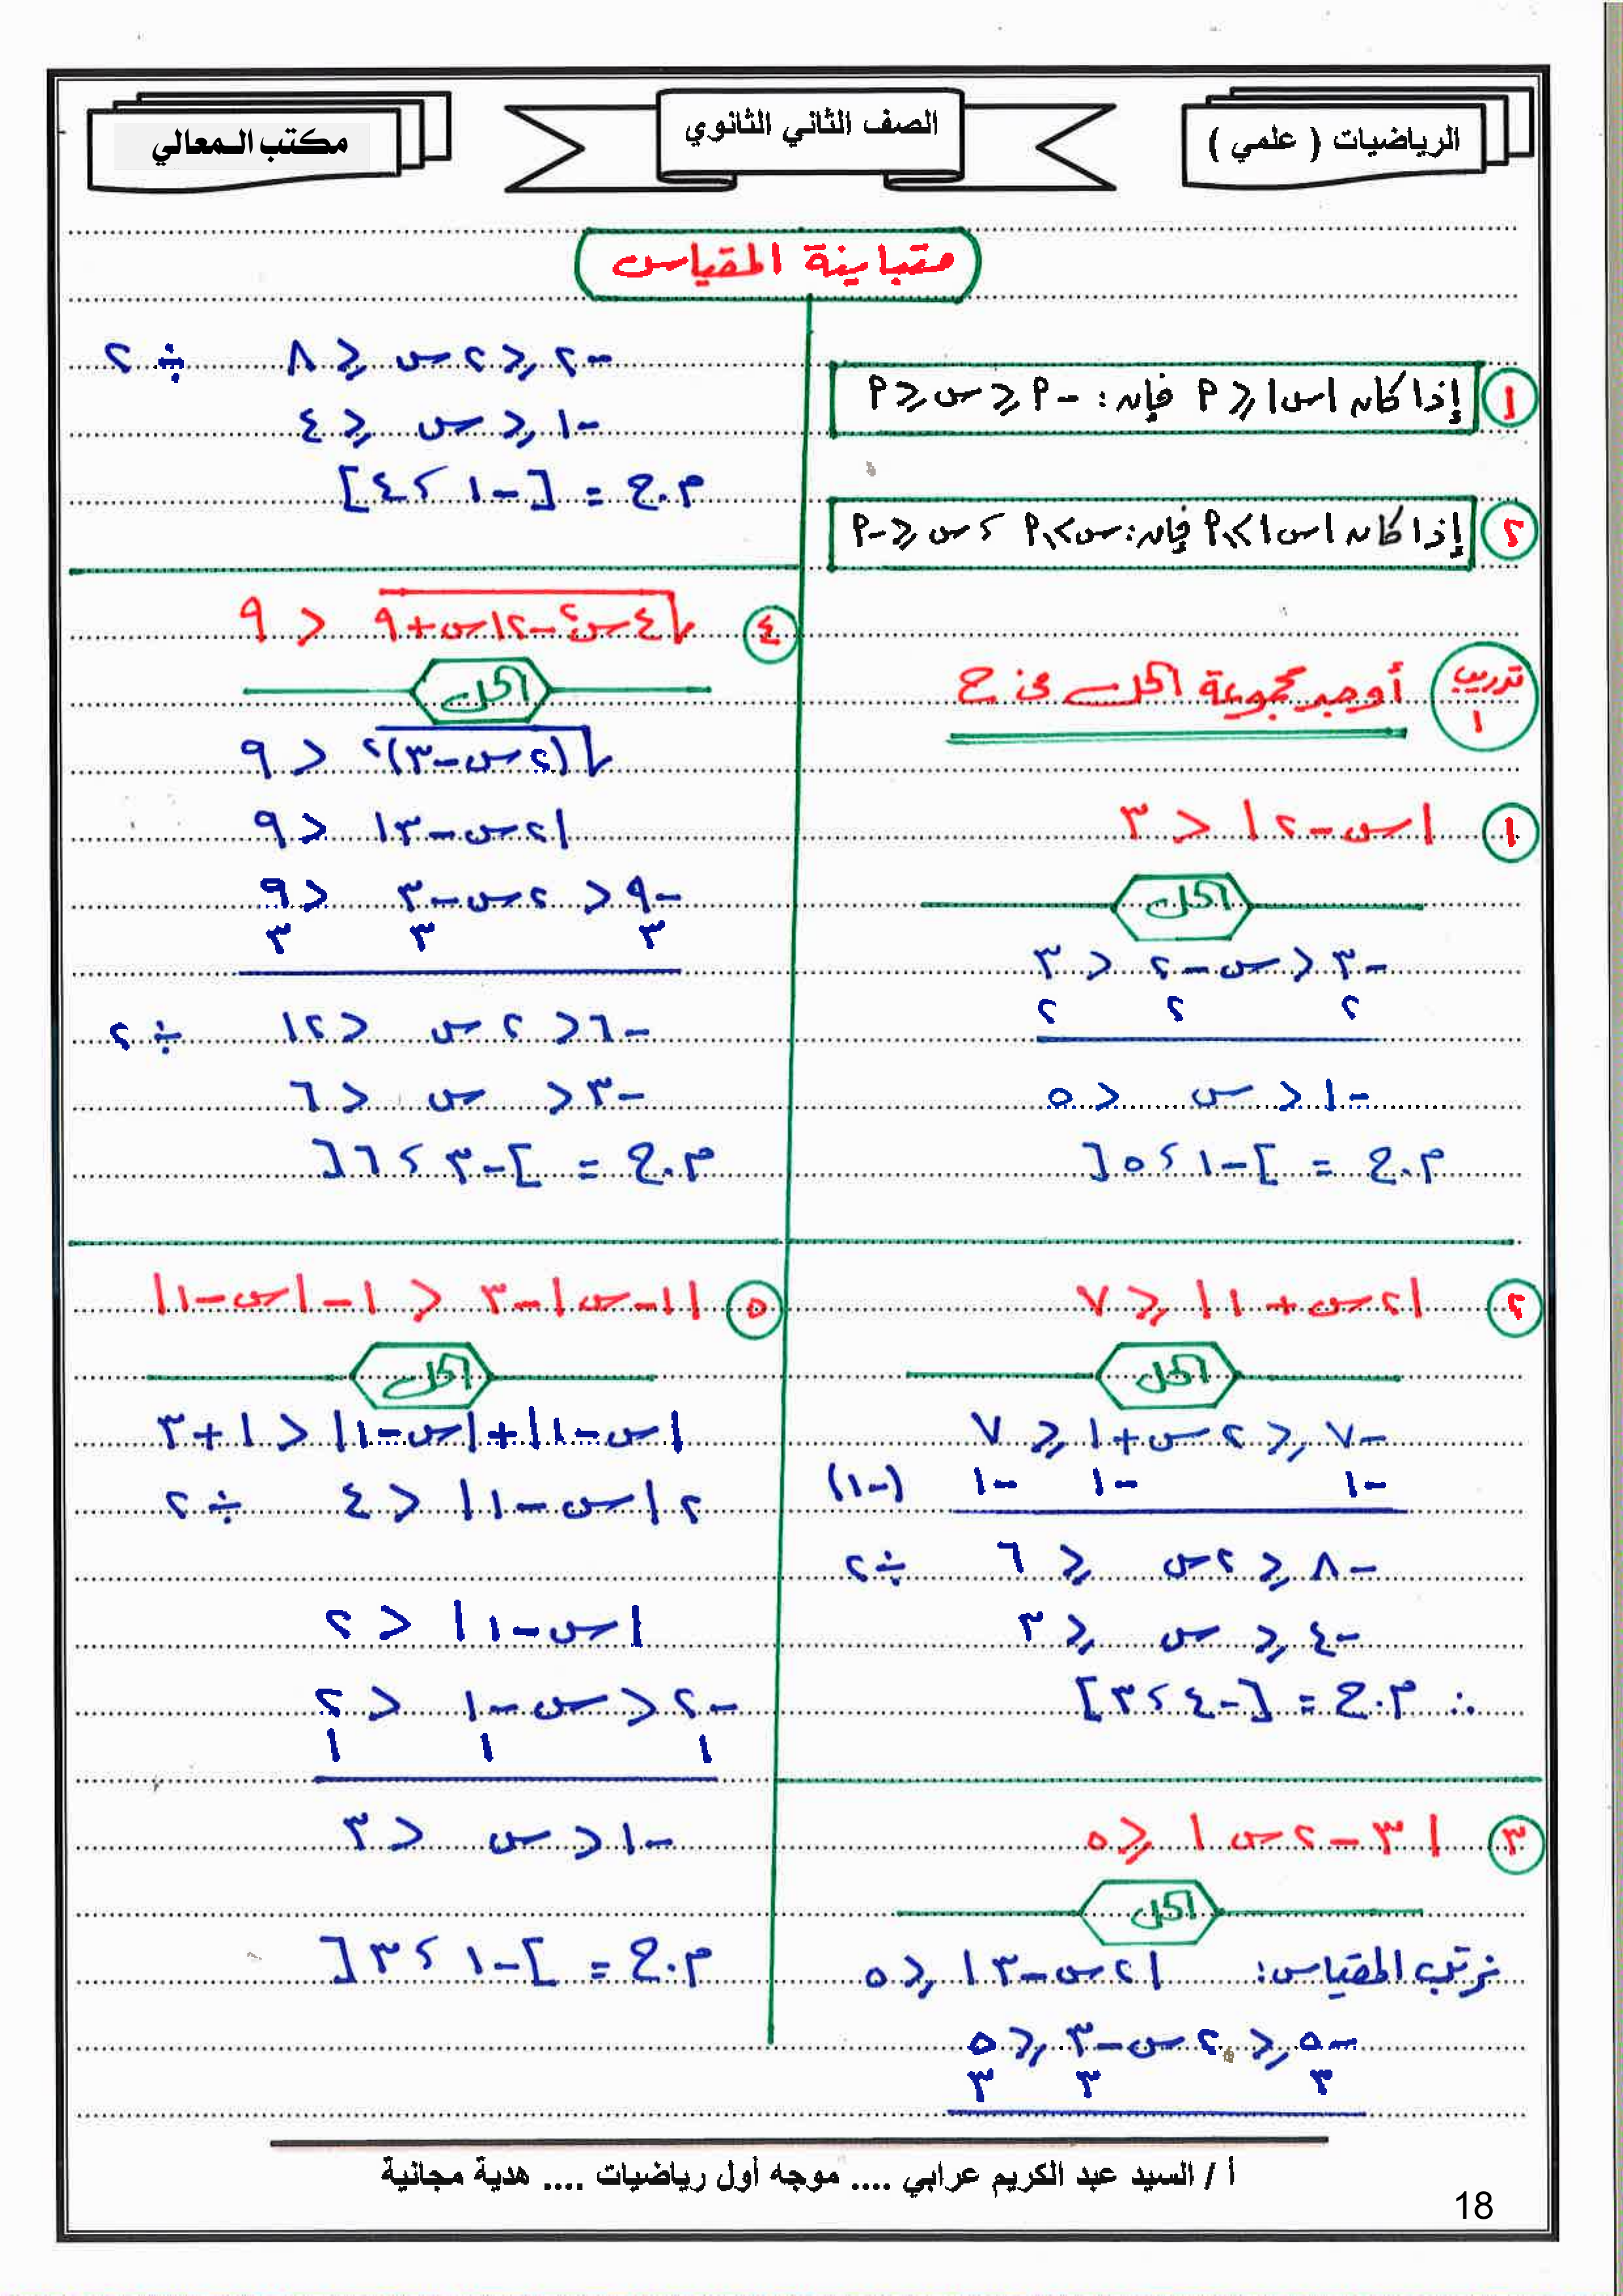 الرياضيات ( علمي )
الصف الثاني الثانوي
مكتب المعالي
متباينة المقياس
١ إذا كان |س| ⩽ م فإن : -م ⩽ س ⩽ م
٢ إذا كان |س| ⩾ م فإن : س ⩾ م ، س ⩽ -م
تدريب ١ أوجد مجموعة الحل في ح
١ |س - ٢| < ٣
الحل
-٣ < س - ٢ < ٣
٢ ٢ ٢
-١ < س < ٥
م.ح = ]-١ ، ٥[
٢ |٢س + ١| ⩽ ٧
الحل
-٧ ⩽ ٢س + ١ ⩽ ٧
-١ -١ -١ (-١)
-٨ ⩽ ٢س ⩽ ٦ ÷ ٢
-٤ ⩽ س ⩽ ٣
∴ م.ح = [-٤ ، ٣]
٣ |٣ - ٢س| ⩽ ٥
الحل
نرتب المقياس: |٢س - ٣| ⩽ ٥
-٥ ⩽ ٢س - ٣ ⩽ ٥
٣ ٣ ٣
-٢ ⩽ ٢س ⩽ ٨ ÷ ٢
-١ ⩽ س ⩽ ٤
م.ح = [-١ ، ٤]
٤ √(٤س² - ١٢س + ٩) < ٩
الحل
√(٢س - ٣)² < ٩
|٢س - ٣| < ٩
-٩ < ٢س - ٣ < ٩
٣ ٣ ٣
-٦ < ٢س < ١٢ ÷ ٢
-٣ < س < ٦
م.ح = ]-٣ ، ٦[
٥ |١ - س| - ٣ < ١ - |س - ١|
الحل
|س - ١| + |س - ١| < ١ + ٣
٢|س - ١| < ٤ ÷ ٢
|س - ١| < ٢
-٢ < س - ١ < ٢
١ ١ ١
-١ < س < ٣
م.ح = ]-١ ، ٣[
أ / السيد عبد الكريم عرابي .... موجه أول رياضيات .... هدية مجانية
18